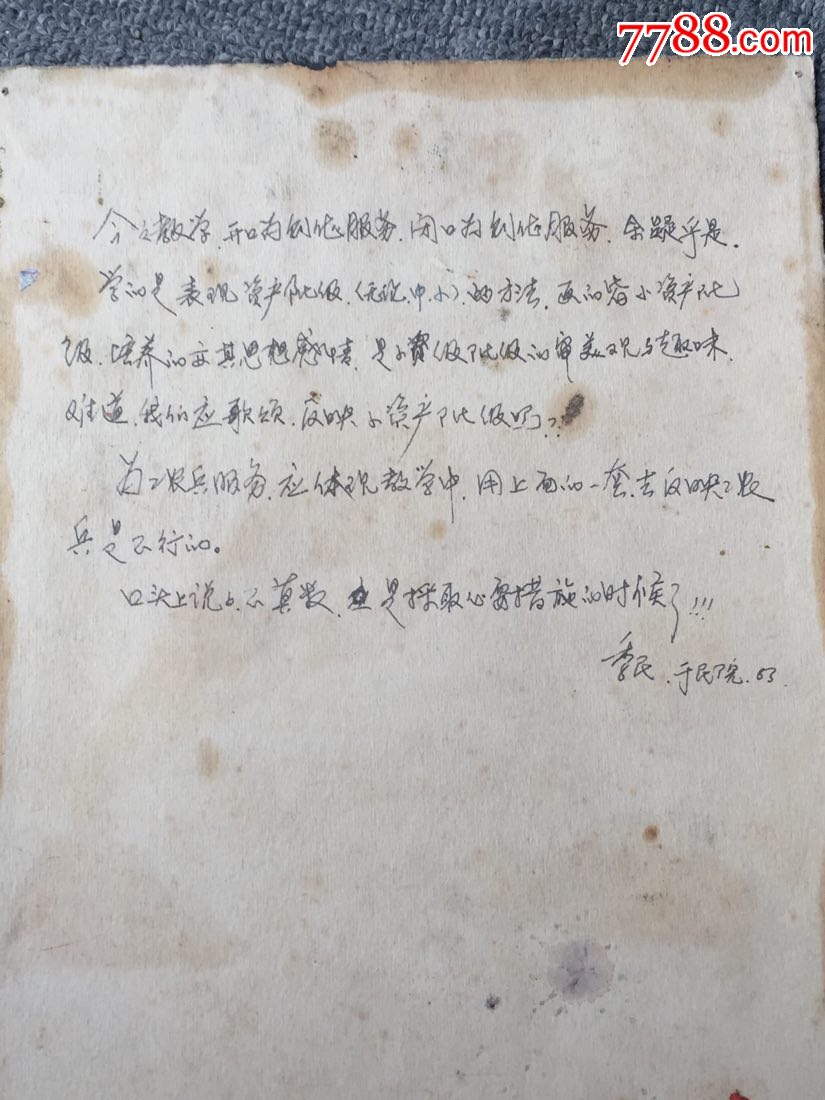 7788.com
今之教学，开口为创作服务，闭口为创作服务，余疑乎是。
学的是表现资产阶级（无论中、小）的方法，画的皆小资产阶
级，培养的亦其思想感情，是小资级阶级的审美观与趣味，
难道，我们应歌颂，反映小资产阶级吗？？
为工农兵服务，应体现教学中，用上面的一套去反映工农
兵是不行的。
口头上说的不算数，是採取必要措施的时候了!!!
季民，于民院.63.